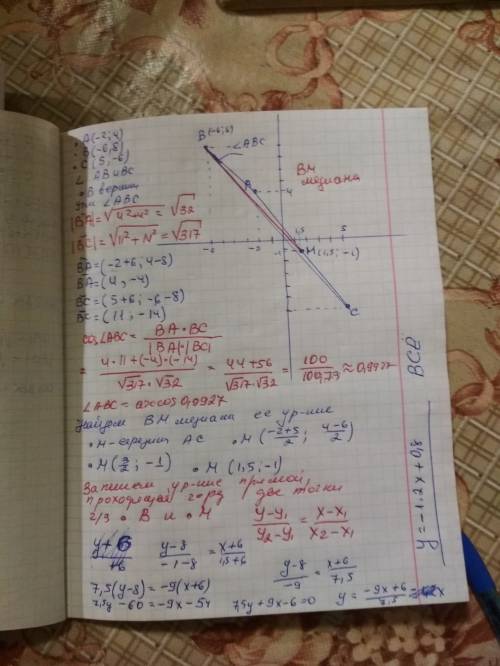 • A(-2; 4)
• B(-6; 8)
• C(5; -6)
∠ AB и BC
• B верши
∠ABC
|BA| = √4²+4² = √32
|BC| = √11²+14² = √317
BA = (-2+6; 4-8)
BA = (4; -4)
BC = (5+6; -6-8)
BC = (11; -14)
cos∠ABC = BA•BC / |BA|•|BC|
= 4•11+(-4)•(-14) / √317•√32 = 44+56 / √317•√32 = 100 / 100,73 ≈ 0,9927
∠ABC = arccos 0,0927
Найдём BM медиана её ур-ние
• M-середина AC • M(-2+5/2; 4-6/2)
• M(3/2; -1) • M(1,5; -1)
Запишем ур-ние прямой,
проходящей через две точки
• B и • M y-y₁ / y₂-y₁ = x-x₁ / x₂-x₁
y-8 / -1-8 = x+6 / 1,5+6
y-8 / -9 = x+6 / 7,5
7,5(y-8) = -9(x+6)
7,5y-60 = -9x-54 7,5y+9x-6=0 y = -9x+6 / 7,5
B(-6;8)
∠ABC
BM
медиана
A
4
1,5
5
-6
-2
-1
M(1,5; -1)
C
y = -1.2x+0,8
ВСЁ